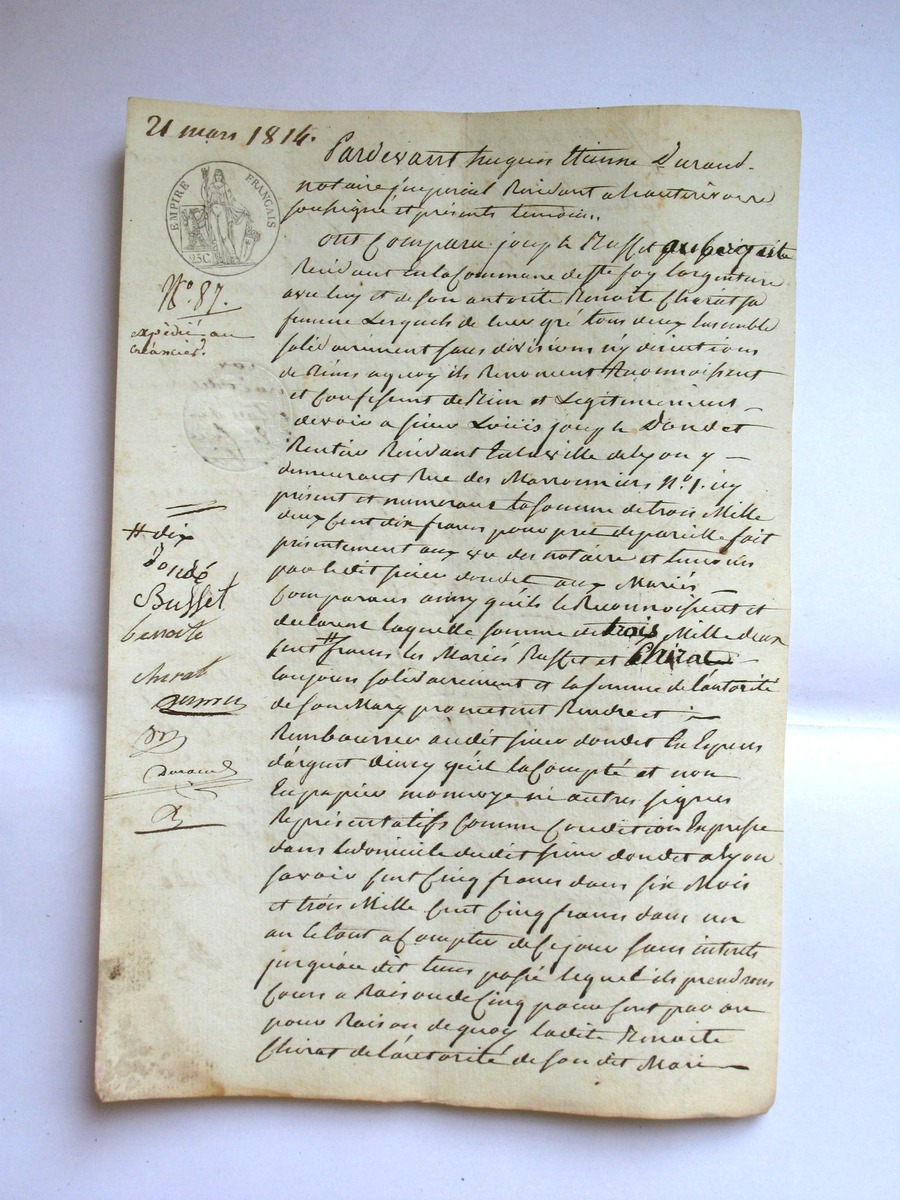 21 mars 1814.
Pardevant hugues Etienne Durand
notaire jmperial Residant a hauterivoire
soussigné et présents temoins.
EMPIRE FRANÇAIS
25C
ont Comparu joseph Busset aubergiste
Residant en la Commune de Ste foy largentiere
avec luy et de son autorité Benoite Chirat sa
femme Lesquels de leur gré tous deux Ensemble
solidairement sans divisions ny discutions
de Biens a quoy ils Renoncent Reconnoissent
et Confessent de Bien et Legitimement
devoir a sieur Loüis joseph Dondet
Rentier Residant En la ville de Lyon y
demeurant Rue des Marronniers No. 1. icy
présent et numerant la somme de trois Mille
deux Cent dix francs pour pret de pareille fait
présentement aux vu des notaire et temoins
par le dit sieur dondet aux Mariés
Comparus ainsy qu'ils le Reconnoissent et
declarent laquelle somme de trois Mille deux
Cent # francs les Mariés Busset et Chirat
toujours solidairement et la femme de l'autorité
de son Mary promettent Rendre et
Rembourser audit sieur dondet En Especes
d'argent ainsy qu'il la Compté et non
En papier monnoye ni autres signes
Représentatifs Comme Condition Expresse
dans le domicile dudit sieur dondet a lyon
savoir Cent Cinq francs dans six Mois
et trois Mille Cent Cinq francs dans un
an le tout a Compter de Ce jour sans interets
jusqu'au dit tems passé lequel ils prendrons
Cours a Raison de Cinq pour Cent par an
pour Raison de quoy ladite Benoite
Chirat de l'autorité de son dit Mari
No. 87.
expédié au
créancier.
# dix
dondé
Busset
benoite
chirat
Durand